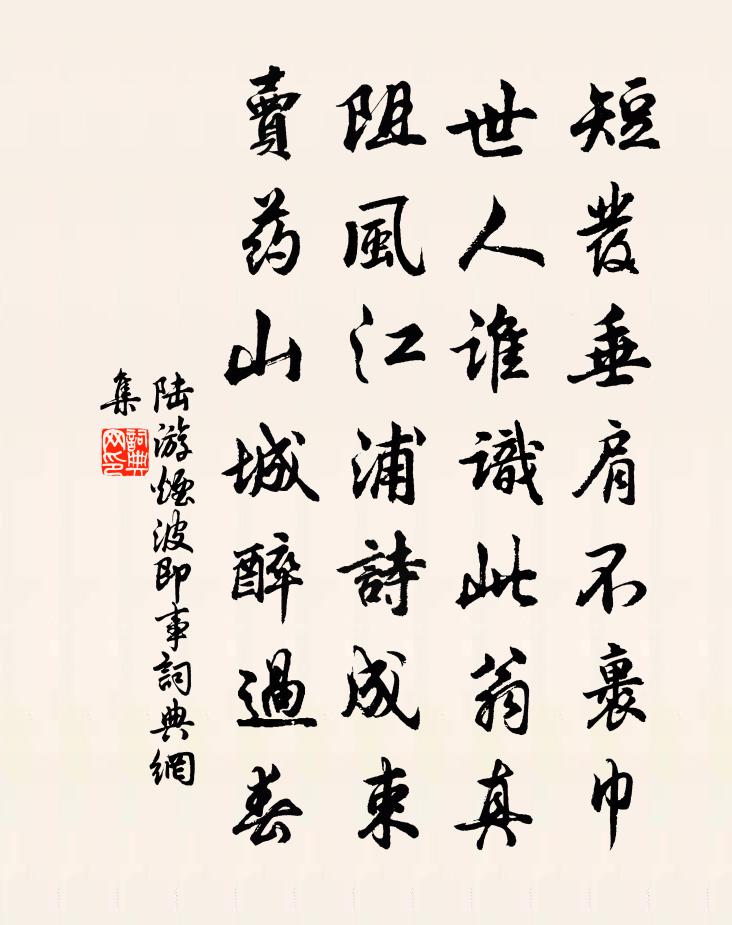 短發垂肩不裹巾
世人谁識此翁真
阻風江浦詩成束
賣药山城醉過春
陆游煙波即事詞典網
集
詞典
网印